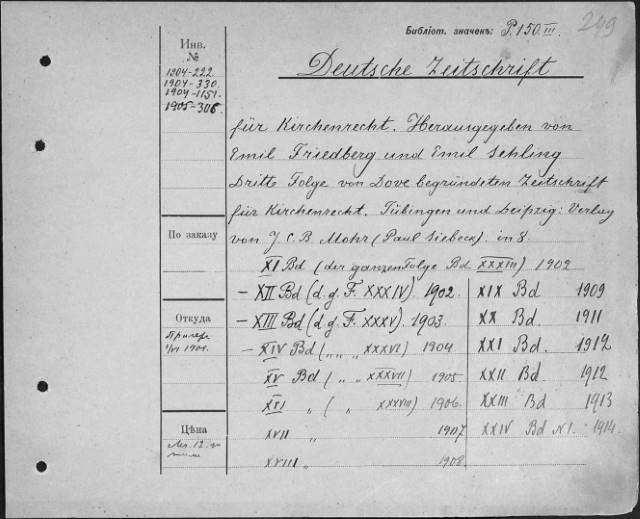 Библіот. значекъ: P.150 III. 249
Deutsche Zeitschrift
Инв. №
1904-222
1904-330
1904-1151
1905-306
für Kirchenrecht. Herausgegeben von
Emil Friedberg und Emil Sehling
Dritte Folge von Dove begründeten Zeitschrift
für Kirchenrecht. Tübingen und Leipzig: Verlag
von J. C. B. Mohr (Paul Siebeck). in 8
По заказу
XI Bd (der ganzen Folge Bd XXXIII) 1902
– XII Bd (d. g. F. XXXIV) 1902
– XIII Bd (d. g. F. XXXV) 1903
– XIV Bd („ „ „ XXXVI) 1904
XV Bd („ „ XXXVII) 1905
XVI „ ( „ XXXVIII) 1906
XVII „ 1907
XVIII „ 1908
XIX Bd 1909
XX Bd 1911
XXI Bd. 1912
XXII Bd 1912
XXIII Bd 1913
XXIV Bd N1. 1914
Откуда
1904
Цѣна